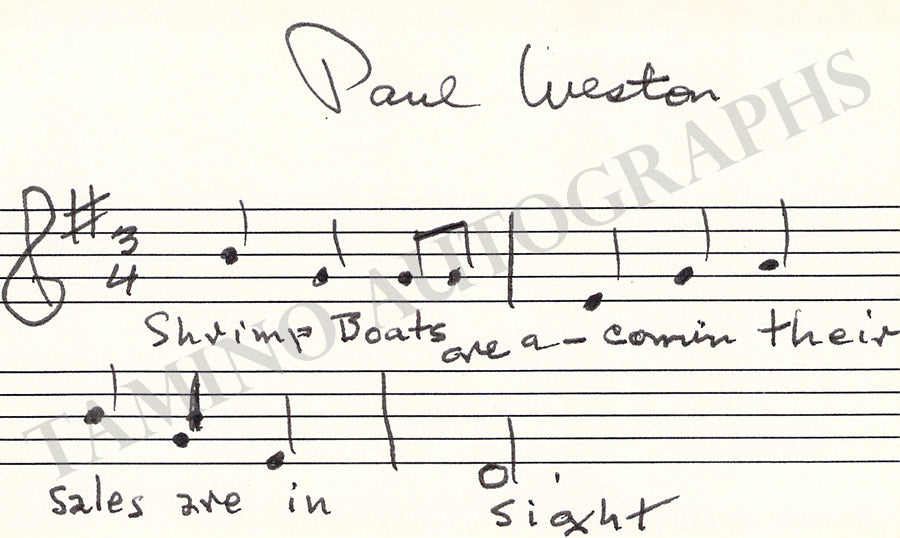 Paul Weston
3
4
Shrimp Boats are a-comin their
sales are in sight
TAMINO AUTOGRAPHS